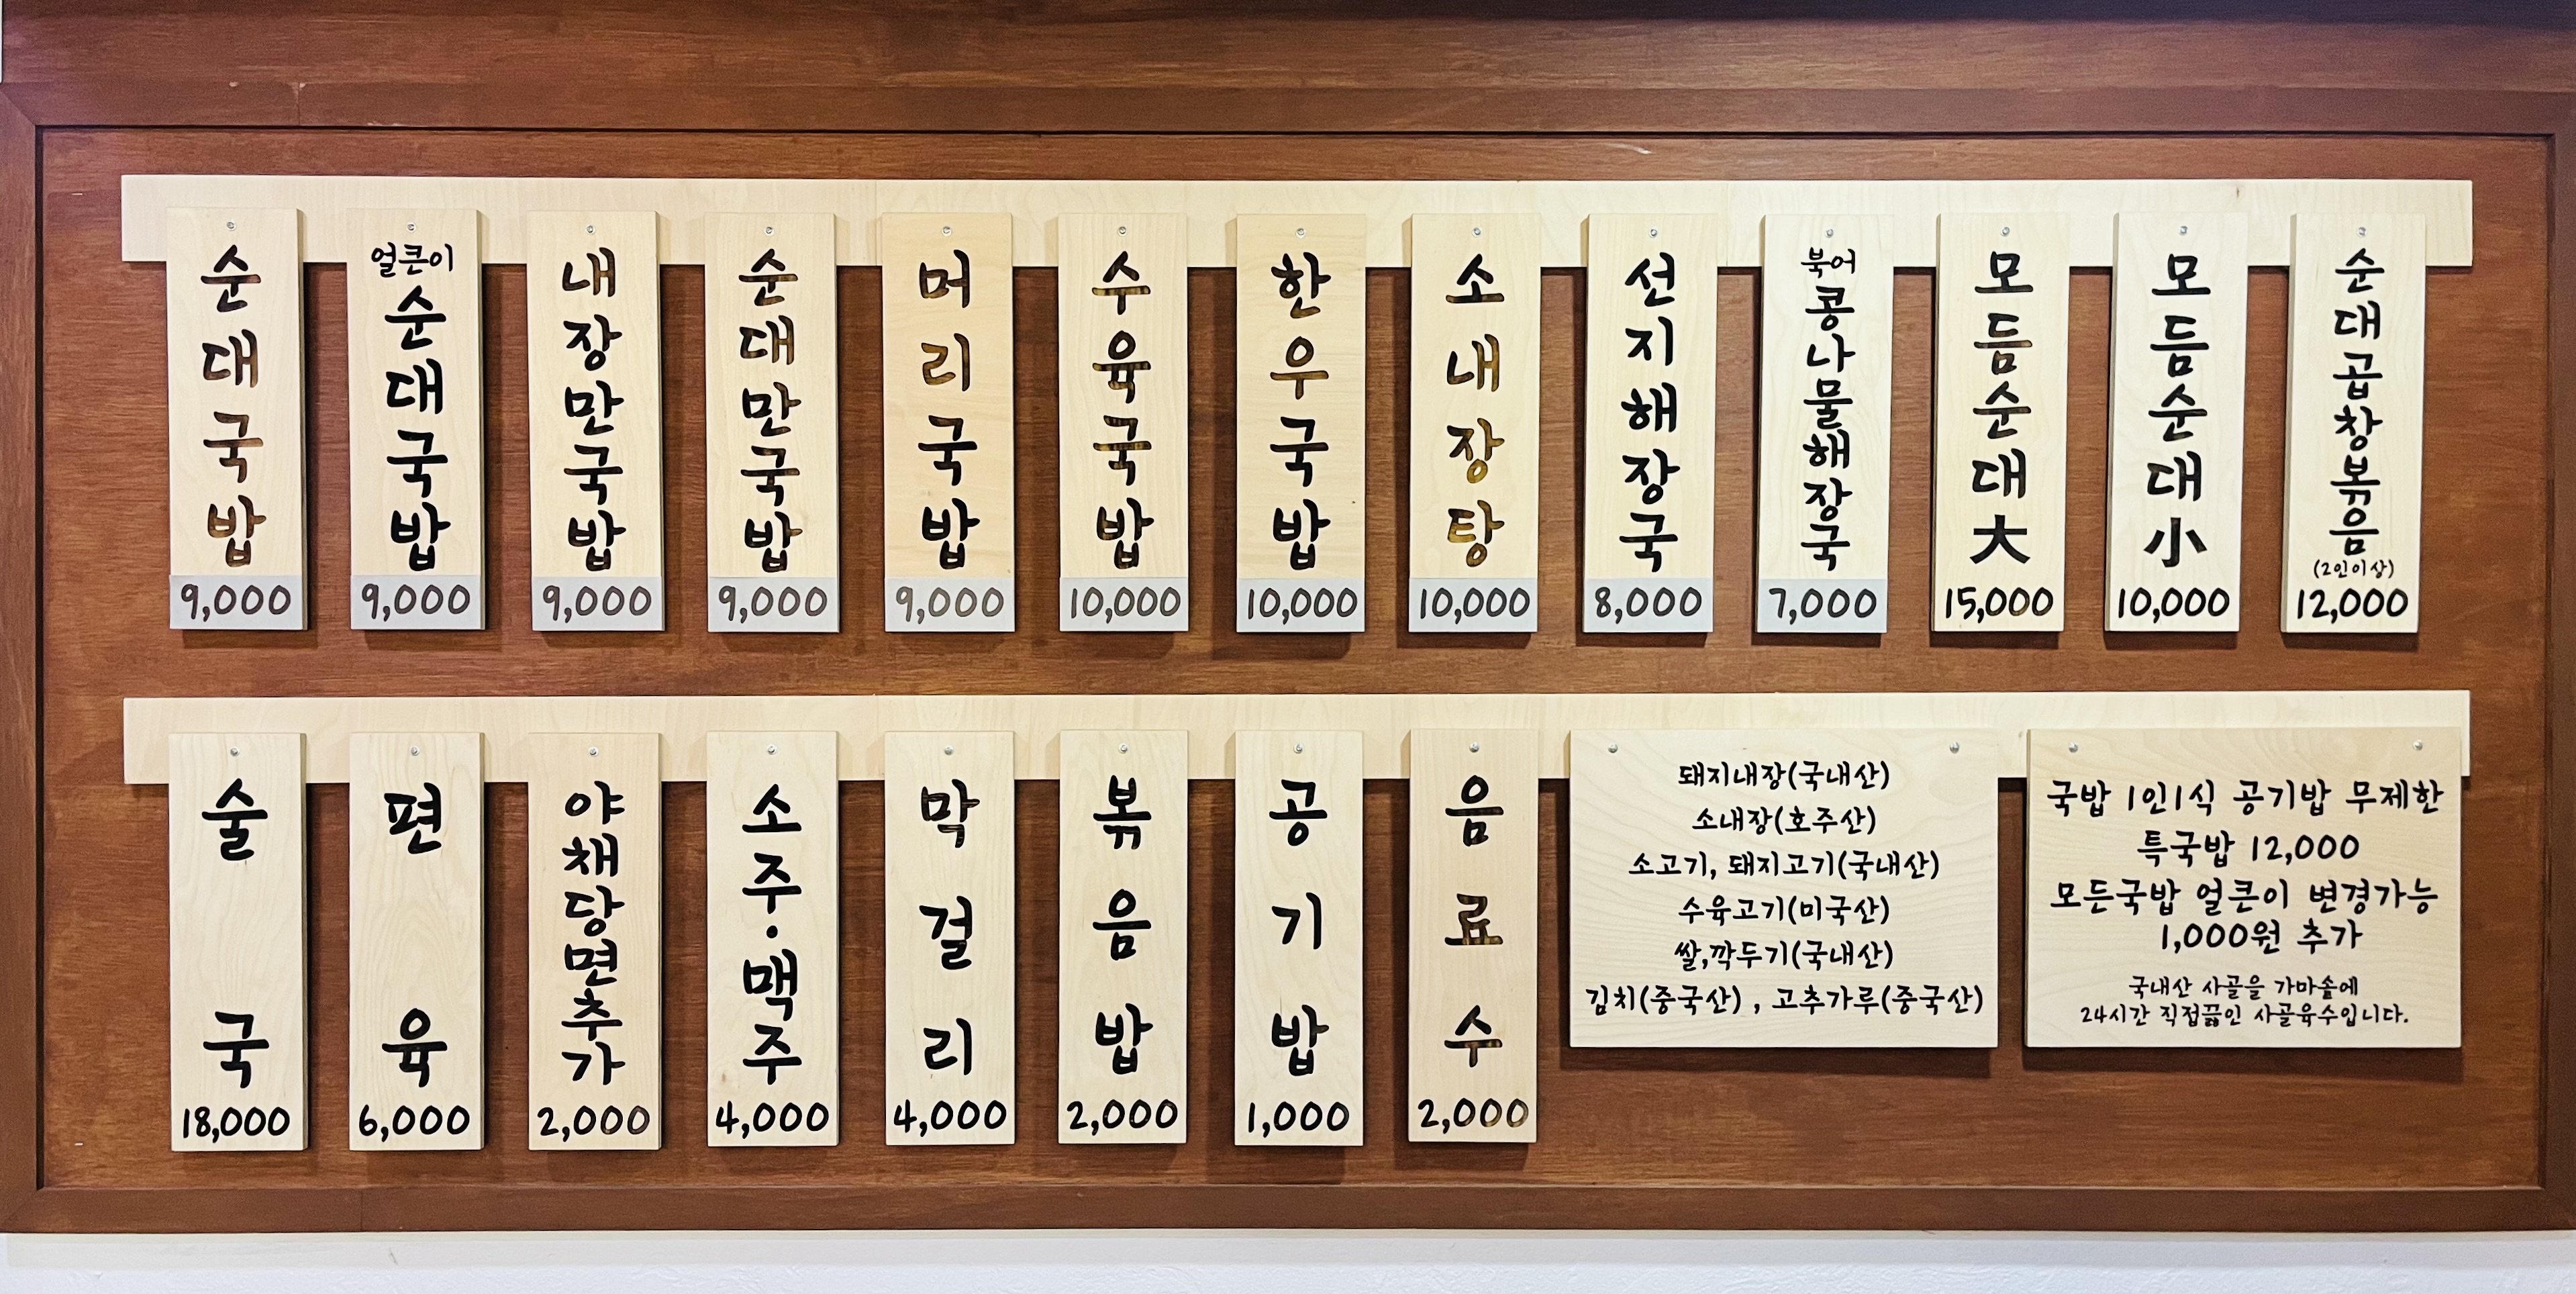 순대국밥
9,000
얼큰이
순대국밥
9,000
내장만국밥
9,000
순대만국밥
9,000
머리국밥
9,000
수육국밥
10,000
한우국밥
10,000
소내장탕
10,000
선지해장국
8,000
북어
콩나물해장국
7,000
모듬순대大
15,000
모듬순대小
10,000
순대곱창볶음
(2인이상)
12,000
술국
18,000
편육
6,000
야채당면추가
2,000
소주·맥주
4,000
막걸리
4,000
볶음밥
2,000
공기밥
1,000
음료수
2,000
돼지내장(국내산)
소내장(호주산)
소고기, 돼지고기(국내산)
수육고기(미국산)
쌀,깍두기(국내산)
김치(중국산) , 고추가루(중국산)
국밥 1인1식 공기밥 무제한
특국밥 12,000
모든국밥 얼큰이 변경가능
1,000원 추가
국내산 사골을 가마솥에
24시간 직접끓인 사골육수입니다.